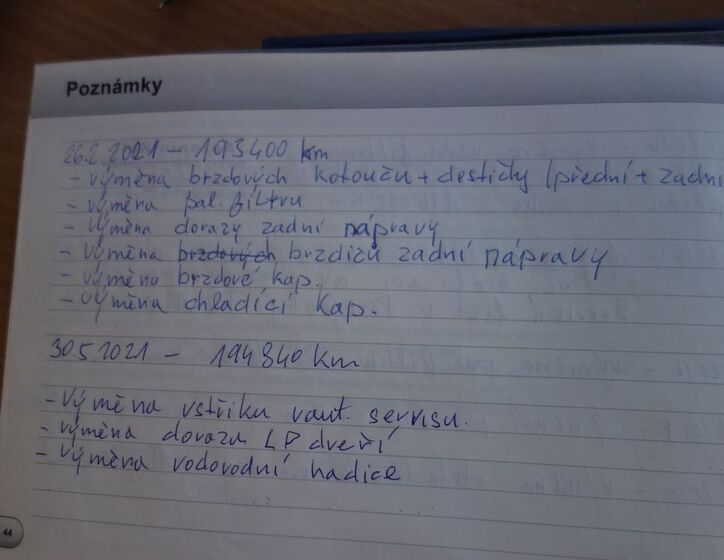 Poznámky
26.2.2021 - 193400 km
- výměna brzdových kotoučů + destičky (přední + zadní
- výměna pal. filtru
- výměna dorazy zadní nápravy
- výměna brzdičů zadní nápravy
- výměna brzdové kap.
- výměna chladící kap.
30.5.2021 - 194840 km
- Výměna vstřiku servisu.
- výměna dorazu LP dveří
- výměna vodovodní hadice
44